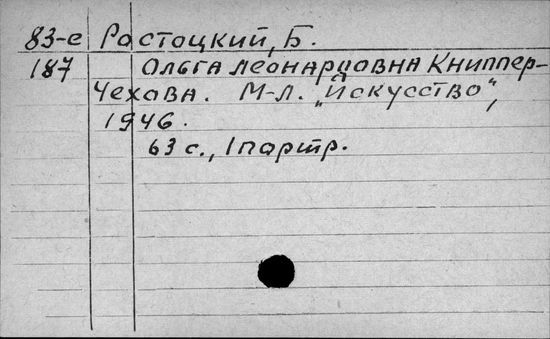 83-е Ростоцкий, Б.
187 Ольга Леонардовна Книппер-
Чехова. М-Л. „Искусство",
1946.
63 с., 1 портр.